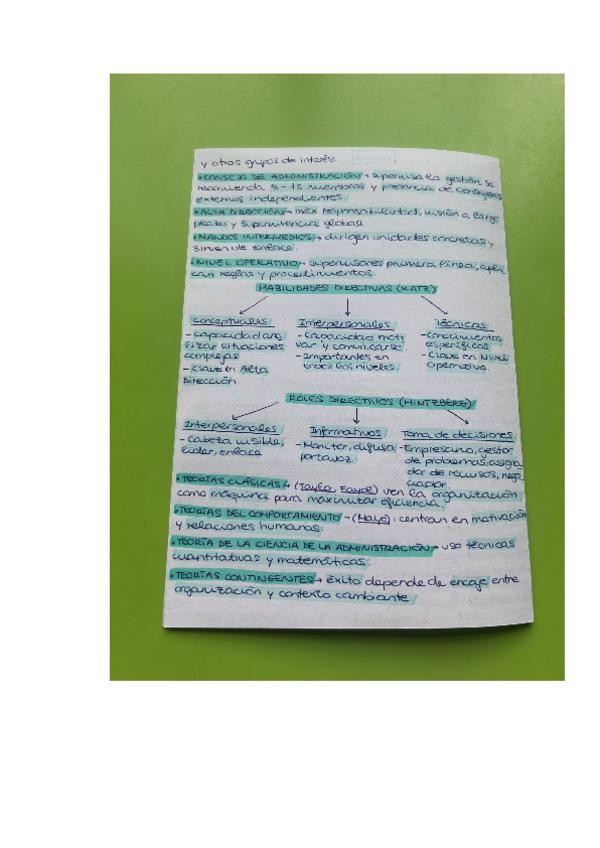 y otros grupos de interés.
• CONSEJO DE ADMINISTRACIÓN → supervisa la gestión. Se
recomienda 5-15 miembros y presencia de consejeros
externos independientes.
• ALTA DIRECCIÓN → máx responsabilidad, visión a largo
plazo y supervivencia global
• MANDOS INTERMEDIOS → dirigen unidades concretas y
sirven de enlace.
• NIVEL OPERATIVO → supervisores primera línea, apli
can reglas y procedimientos.
HABILIDADES DIRECTIVAS (KATZ)
Conceptuales
- Capacidad ana
lizar situaciones
complejas
- Clave en Alta
Dirección
Interpersonales
- Capacidad moti
var y comunicarse
- Importantes en
todos los niveles
Técnicas
- Conocimientos
específicos
- Clave en Nivel
operativo.
ROLES DIRECTIVOS (MINTZBERG)
Interpersonales
- Cabeza visible,
líder, enlace
Informativos
- Monitor, difusor
portavoz
Toma de decisiones
- Empresario, gestor
de problemas, asigna
dor de recursos, nego
ciador.
• TEORÍAS CLÁSICAS → (Taylor, Fayol) ven la organización
como máquina para maximizar eficiencia.
• TEORÍAS DEL COMPORTAMIENTO → (Mayo): centran en motivación
y relaciones humanas.
• TEORÍA DE LA CIENCIA DE LA ADMINISTRACIÓN → uso técnicas
cuantitativas y matemáticas.
• TEORÍAS CONTINGENTES → éxito depende de encaje entre
organización y contexto cambiante.